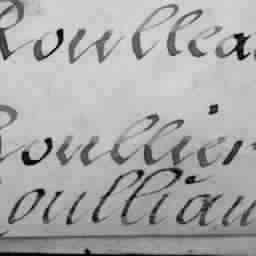 Roullea
Roullier
Roulliau